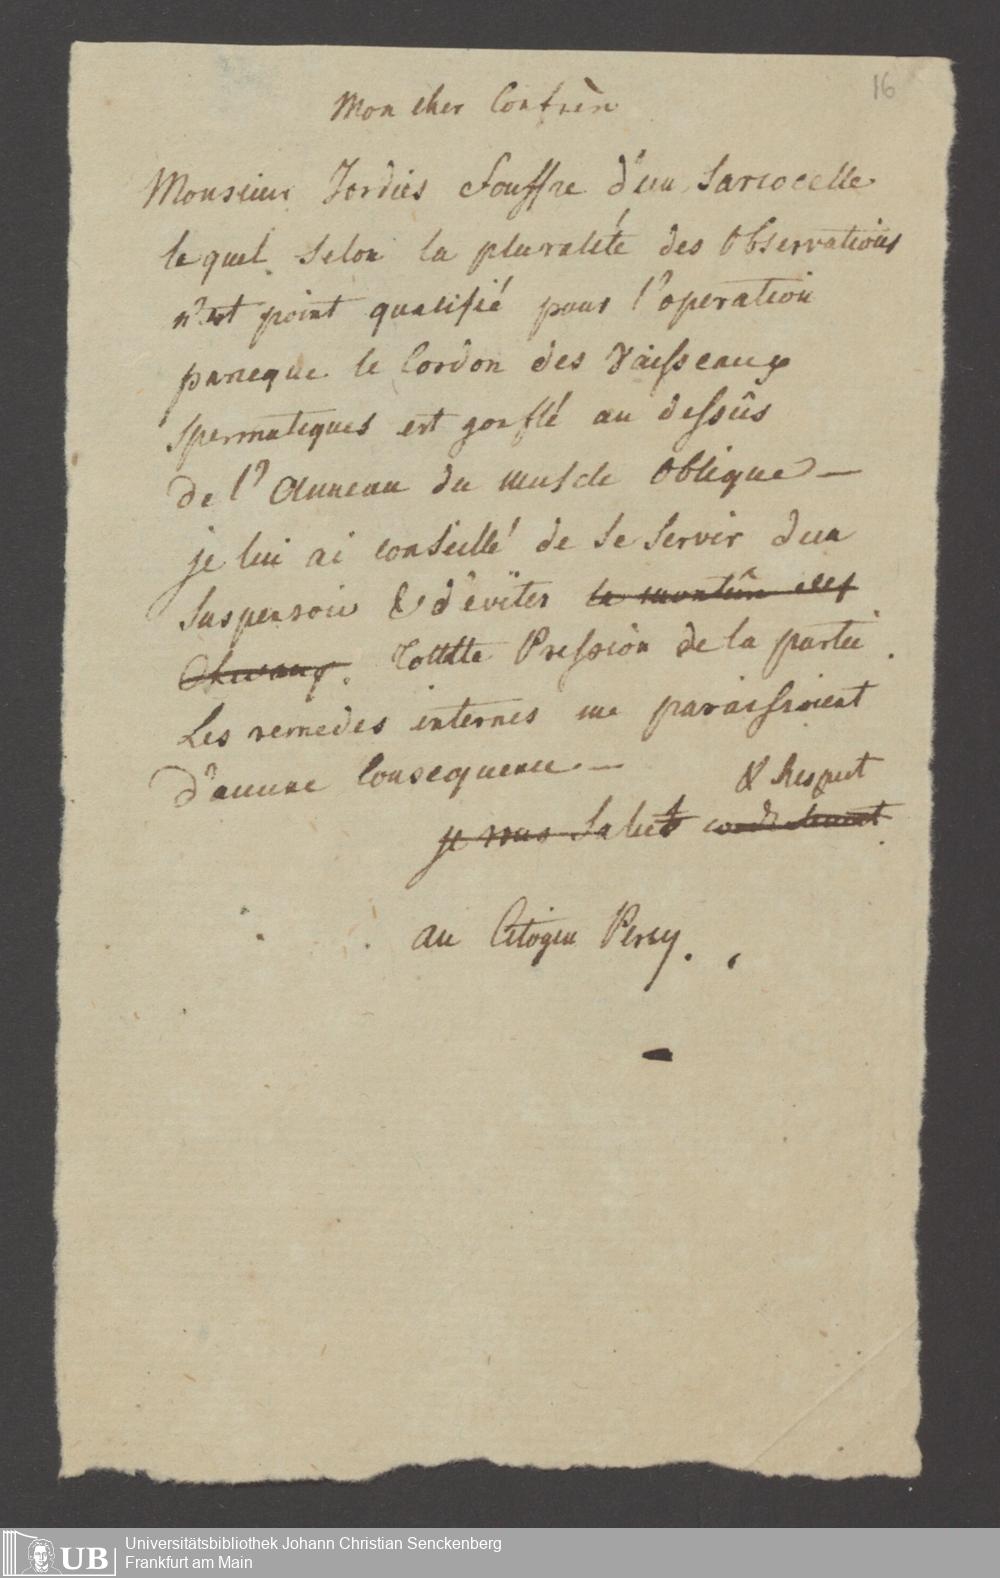 16
Mon cher Confrèr
Monsieur Jordies souffre d'un Sarcocelle
lequel selon la pluralité des Observations
n'est point qualifié pour l'operation
parceque le Cordon des Vaisseaux
spermatiques est gonflé au dessûs
de l'Anneau du muscle Oblique —
je lui ai conseillé de se servir d'un
suspensoir & d'eviter
Toutte Pression de la partie.
Les remedes internes me paraissoient
d'aucune Consequence —
& Respect
je vous Salut cordialement
au Citoyen Percy.
Universitätsbibliothek Johann Christian Senckenberg
Frankfurt am Main
UB